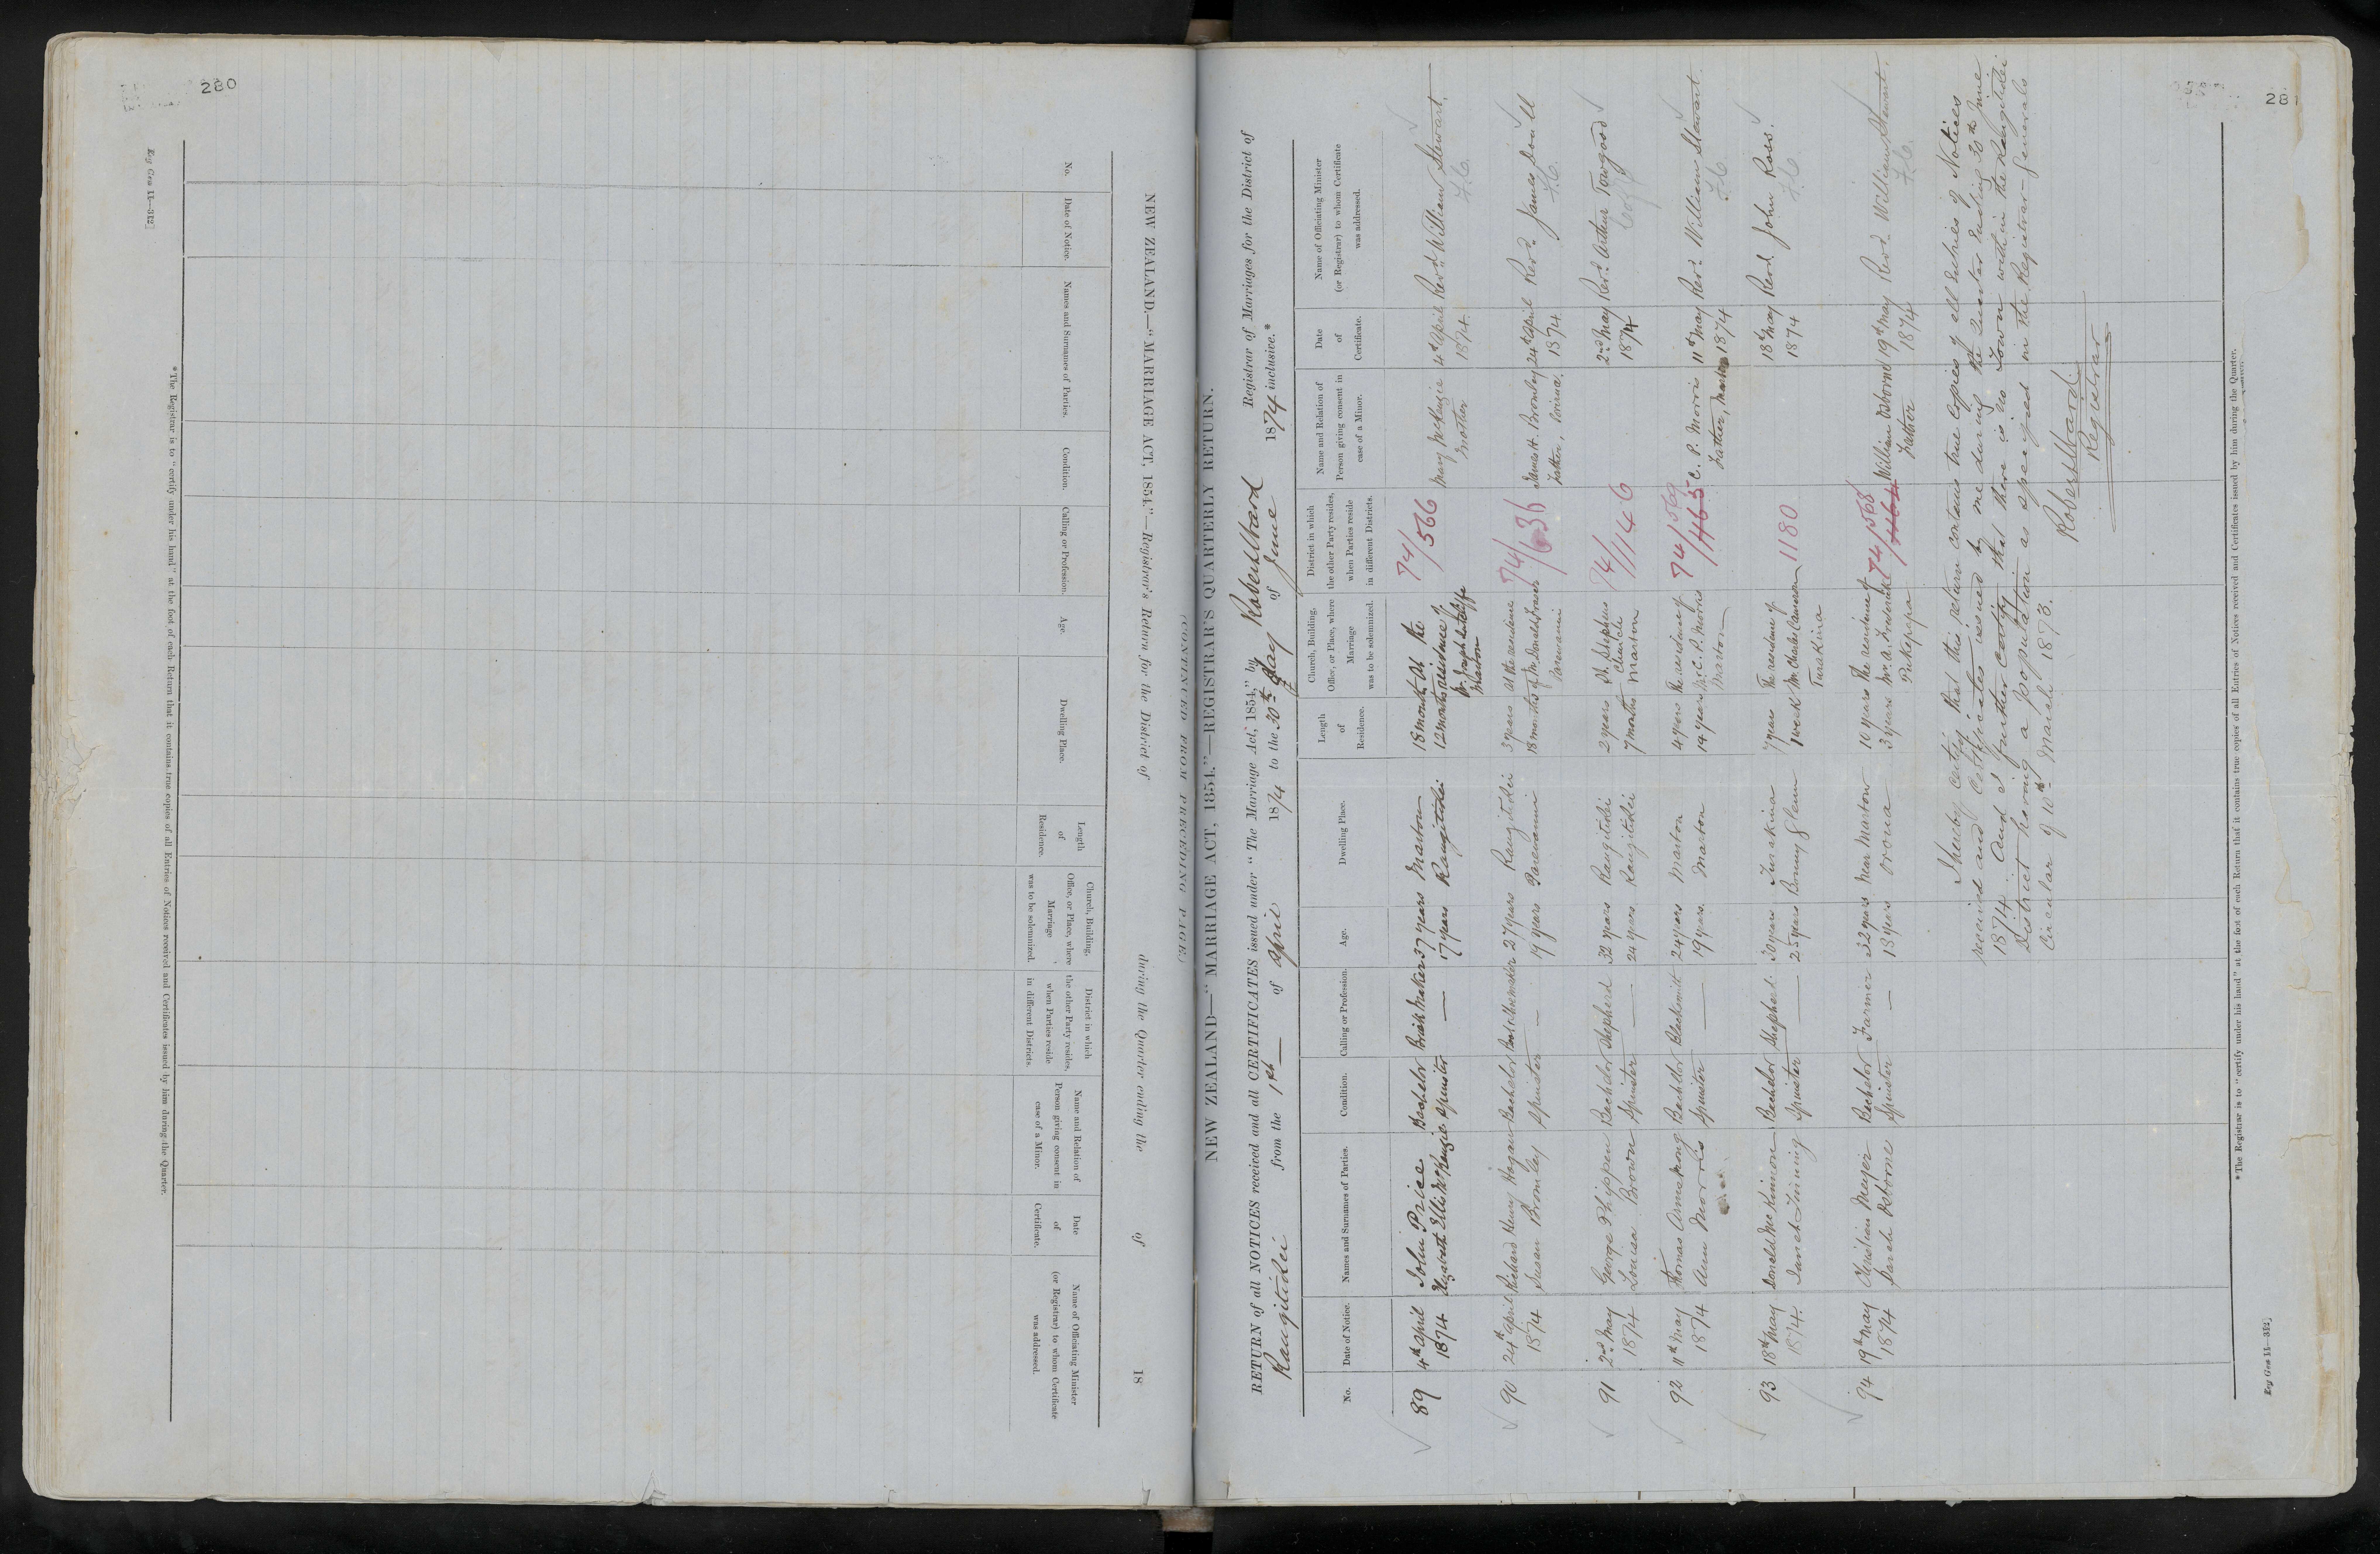 280
Reg Gen 11—312]
NEW ZEALAND.—"MARRIAGE ACT, 1854."—Registrar's Return for the District of during the Quarter ending the of 18
(CONTINUED FROM PRECEDING PAGE.)
No.
Date of Notice.
Names and Surnames of Parties.
Condition.
Calling or Profession.
Age.
Dwelling Place.
Length of Residence.
Church, Building, Office, or Place, where Marriage was to be solemnized.
District in which the other Party resides, when Parties reside in different Districts.
Name and Relation of Person giving consent in case of a Minor.
Date of Certificate.
Name of Officiating Minister (or Registrar) to whom Certificate was addressed.
*The Registrar is to "certify under his hand" at the foot of each Return that it contains true copies of all Entries of Notices received and Certificates issued by him during the Quarter.
28
NEW ZEALAND—"MARRIAGE ACT, 1854."—REGISTRAR'S QUARTERLY RETURN.
RETURN of all NOTICES received and all CERTIFICATES issued under "The Marriage Act, 1854," by Robert Ward Registrar of Marriages for the District of
Rangitikei from the 1st of April 1874 to the 30th day of June 1874 inclusive.*
No.
Date of Notice.
Names and Surnames of Parties.
Condition.
Calling or Profession.
Age.
Dwelling Place.
Length of Residence.
Church, Building, Office, or Place, where Marriage was to be solemnized.
District in which the other Party resides, when Parties reside in different Districts.
Name and Relation of Person giving consent in case of a Minor.
Date of Certificate.
Name of Officiating Minister (or Registrar) to whom Certificate was addressed.
89 4th April John Price Bachelor Brick Maker 37 years Marton 18 months At the 74/ Mary McKenzie 4th April Revd. William Stewart.
1874 Elizabeth Ellis McKenzie Spinster — 17 years Rangitikei 12 months residence of 566 Mother 1874. F.C.
Mr. Joseph Sutcliffe
Marton
90 24th April Richard Henry Hogan Bachelor Bootshoemaker 27 years Rangitikei 3 years At the residence 74/ James H. Bromley 24th April Revd. James Duill
1874 Susan Bromley Spinster — 19 years Parewanui 18 months of Mr. Donald Fraser 636 Father, 1874 F.C.
Parewanui
91 2nd May George Phippen Bachelor Shepherd 32 years Rangitikei 2 years St. Stephens 74/ 2nd May Revd. Arthur Towgood
1874 Louisa Brown Spinster — 24 years Rangitikei 7 months Church 1146 1874
Marton
92 11th May Thomas Armstrong Bachelor Blacksmith 24 years Marton 4 years The residence of 74/569 C. P. Morris 11th May Revd. William Stewart
1874 Ann Morris Spinster — 19 years. Marton 14 years Mr. C. P. Morris 465 Father, Marton 1874 F.C.
Marton
93 18th May Donald McKinnon Bachelor Shepherd. 30 years Turakina 7 years The residence of 1180 18th May Revd John Ross.
1874. Janet Twining Spinster — 25 years Bonny Glenn 1 week Mr. Charles Cameron 1874 F.C.
Turakina
94 19th May Christian Meyer Bachelor Farmer 32 years Near Marton 10 years The residence of 74/568 William Osborne 19th May Revd. William Stewart.
1874 Sarah Osborne Spinster — 18 years Oroua 3 years Mr. A. Frederick 464 Father 1874 F.C.
Pukepapa
I hereby certify that this return contains true copies of all Entries of Notices
received and Certificates issued by me during the Quarter Ending 30th June
1874. And I further certify that there is no Town within the Rangitikei
District having a population as specified in the Registrar-Generals
Circular of 10th March 1873.
Robert Ward
Registrar
*The Registrar is to "certify under his hand" at the foot of each Return that it contains true copies of all Entries of Notices received and Certificates issued by him during the Quarter.
Reg Gen 11—312]